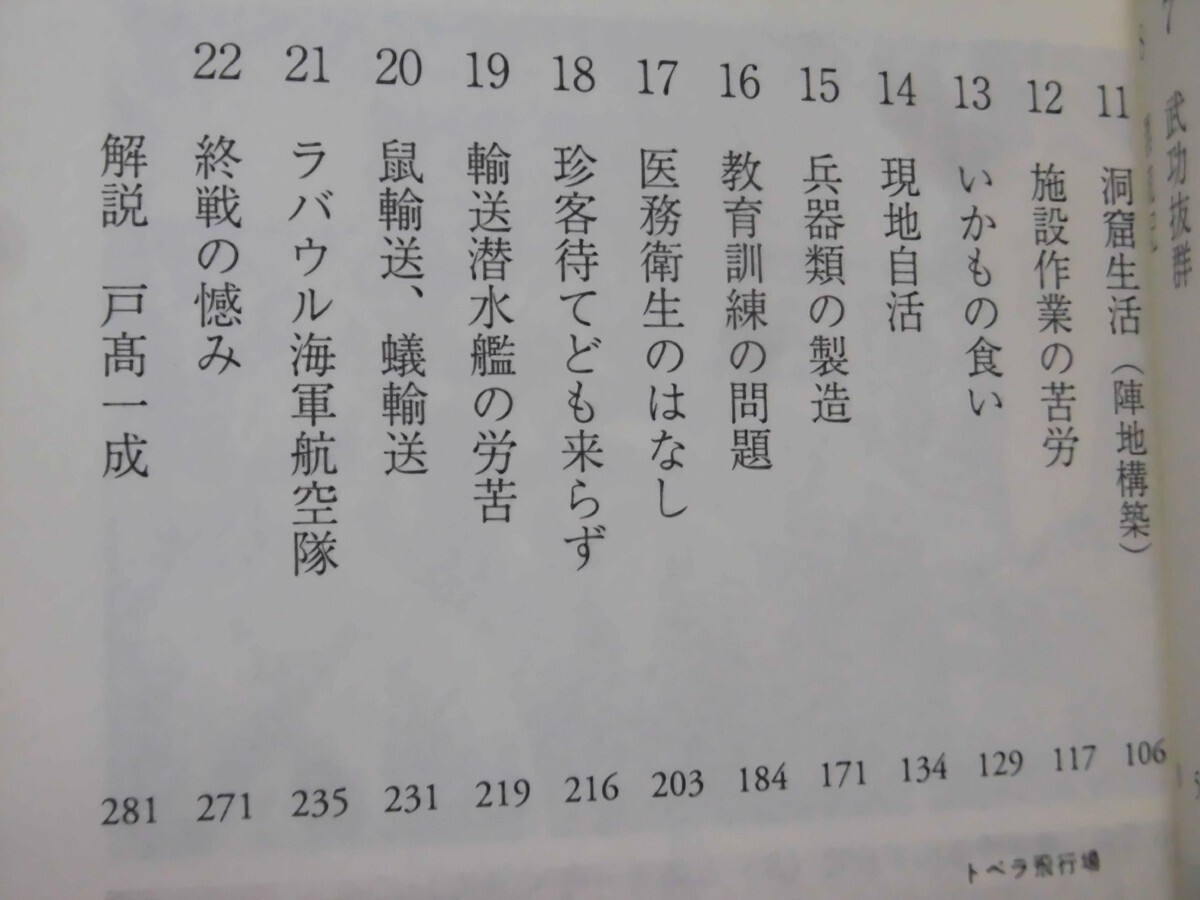 7 武功抜群
11 洞窟生活（陣地構築） 106
12 施設作業の苦労 117
13 いかもの食い 129
14 現地自活 134
15 兵器類の製造 171
16 教育訓練の問題 184
17 医務衛生のはなし 203
18 珍客待てども来らず 216
19 輸送潜水艦の労苦 219
20 鼠輸送、蟻輸送 231
21 ラバウル海軍航空隊 235
22 終戦の憾み 271
解説 戸髙一成 281
トベラ飛行場